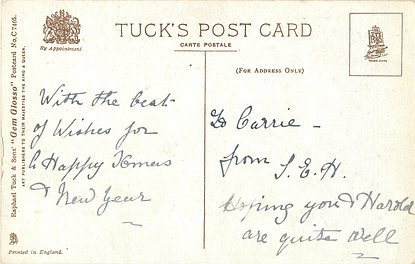 TUCK'S POST CARD
CARTE POSTALE
By Appointment
(FOR ADDRESS ONLY)
Raphael Tuck & Sons' "Gem Glosso" Postcard No. C 7405.
ART PUBLISHERS TO THEIR MAJESTIES THE KING & QUEEN.
With the best
of Wishes for
a Happy Xmas
& New Year
To Carrie –
from
S. E. H.
Hoping you & Harold
are quite well
Printed in England.